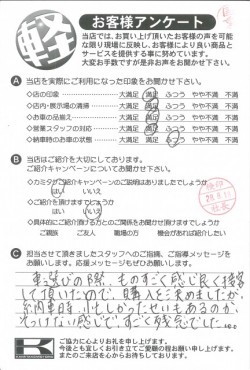 軽
お客様アンケート
当店では、お買い上げ頂いたお客様の声を可能
な限り現場に反映し、お客様により良い商品と
サービスを提供する事に努めています。
大変お手数ですが是非お声をお聞かせ下さい。
A 当店を実際にご利用になった印象をお聞かせ下さい。
◇店の印象 大満足 満足 ふつう やや不満 不満
◇店内・展示場の清掃 大満足 満足 ふつう やや不満 不満
◇お車の品揃え 大満足 満足 ふつう やや不満 不満
◇営業スタッフの対応 大満足 満足 ふつう やや不満 不満
◇納車時のお車の状態 大満足 満足 ふつう やや不満 不満
B 当店はご紹介を大切にしております。
ご紹介キャンペーンについてお聞かせ下さい。
◇カミタからご紹介キャンペーンのご説明はありましたでしょうか
はい いいえ
◇ご紹介をお聞き頂けますでしょうか
はい いいえ
◇具体的にご紹介頂ける方とのご関係をお聞かせ頂けますでしょうか
ご親族 ご友人 職場の方 機会があれば紹介したい
C 担当させて頂きましたスタッフへのご指摘、ご指導メッセージを
お願いします。応援メッセージもぜひお願いします。
車選びの際、ものすごく感じ良く接客
して頂いたので、購入を決めましたが、
納車時、忙しかったせいもあるのか
そっけない感じで、すごく残念でした
K
ご協力に心よりお礼を申し上げます。
今後とも宜しくお引き立てご愛顧の程お願い申し上げます、
またのご来店を心からお待ちしております。